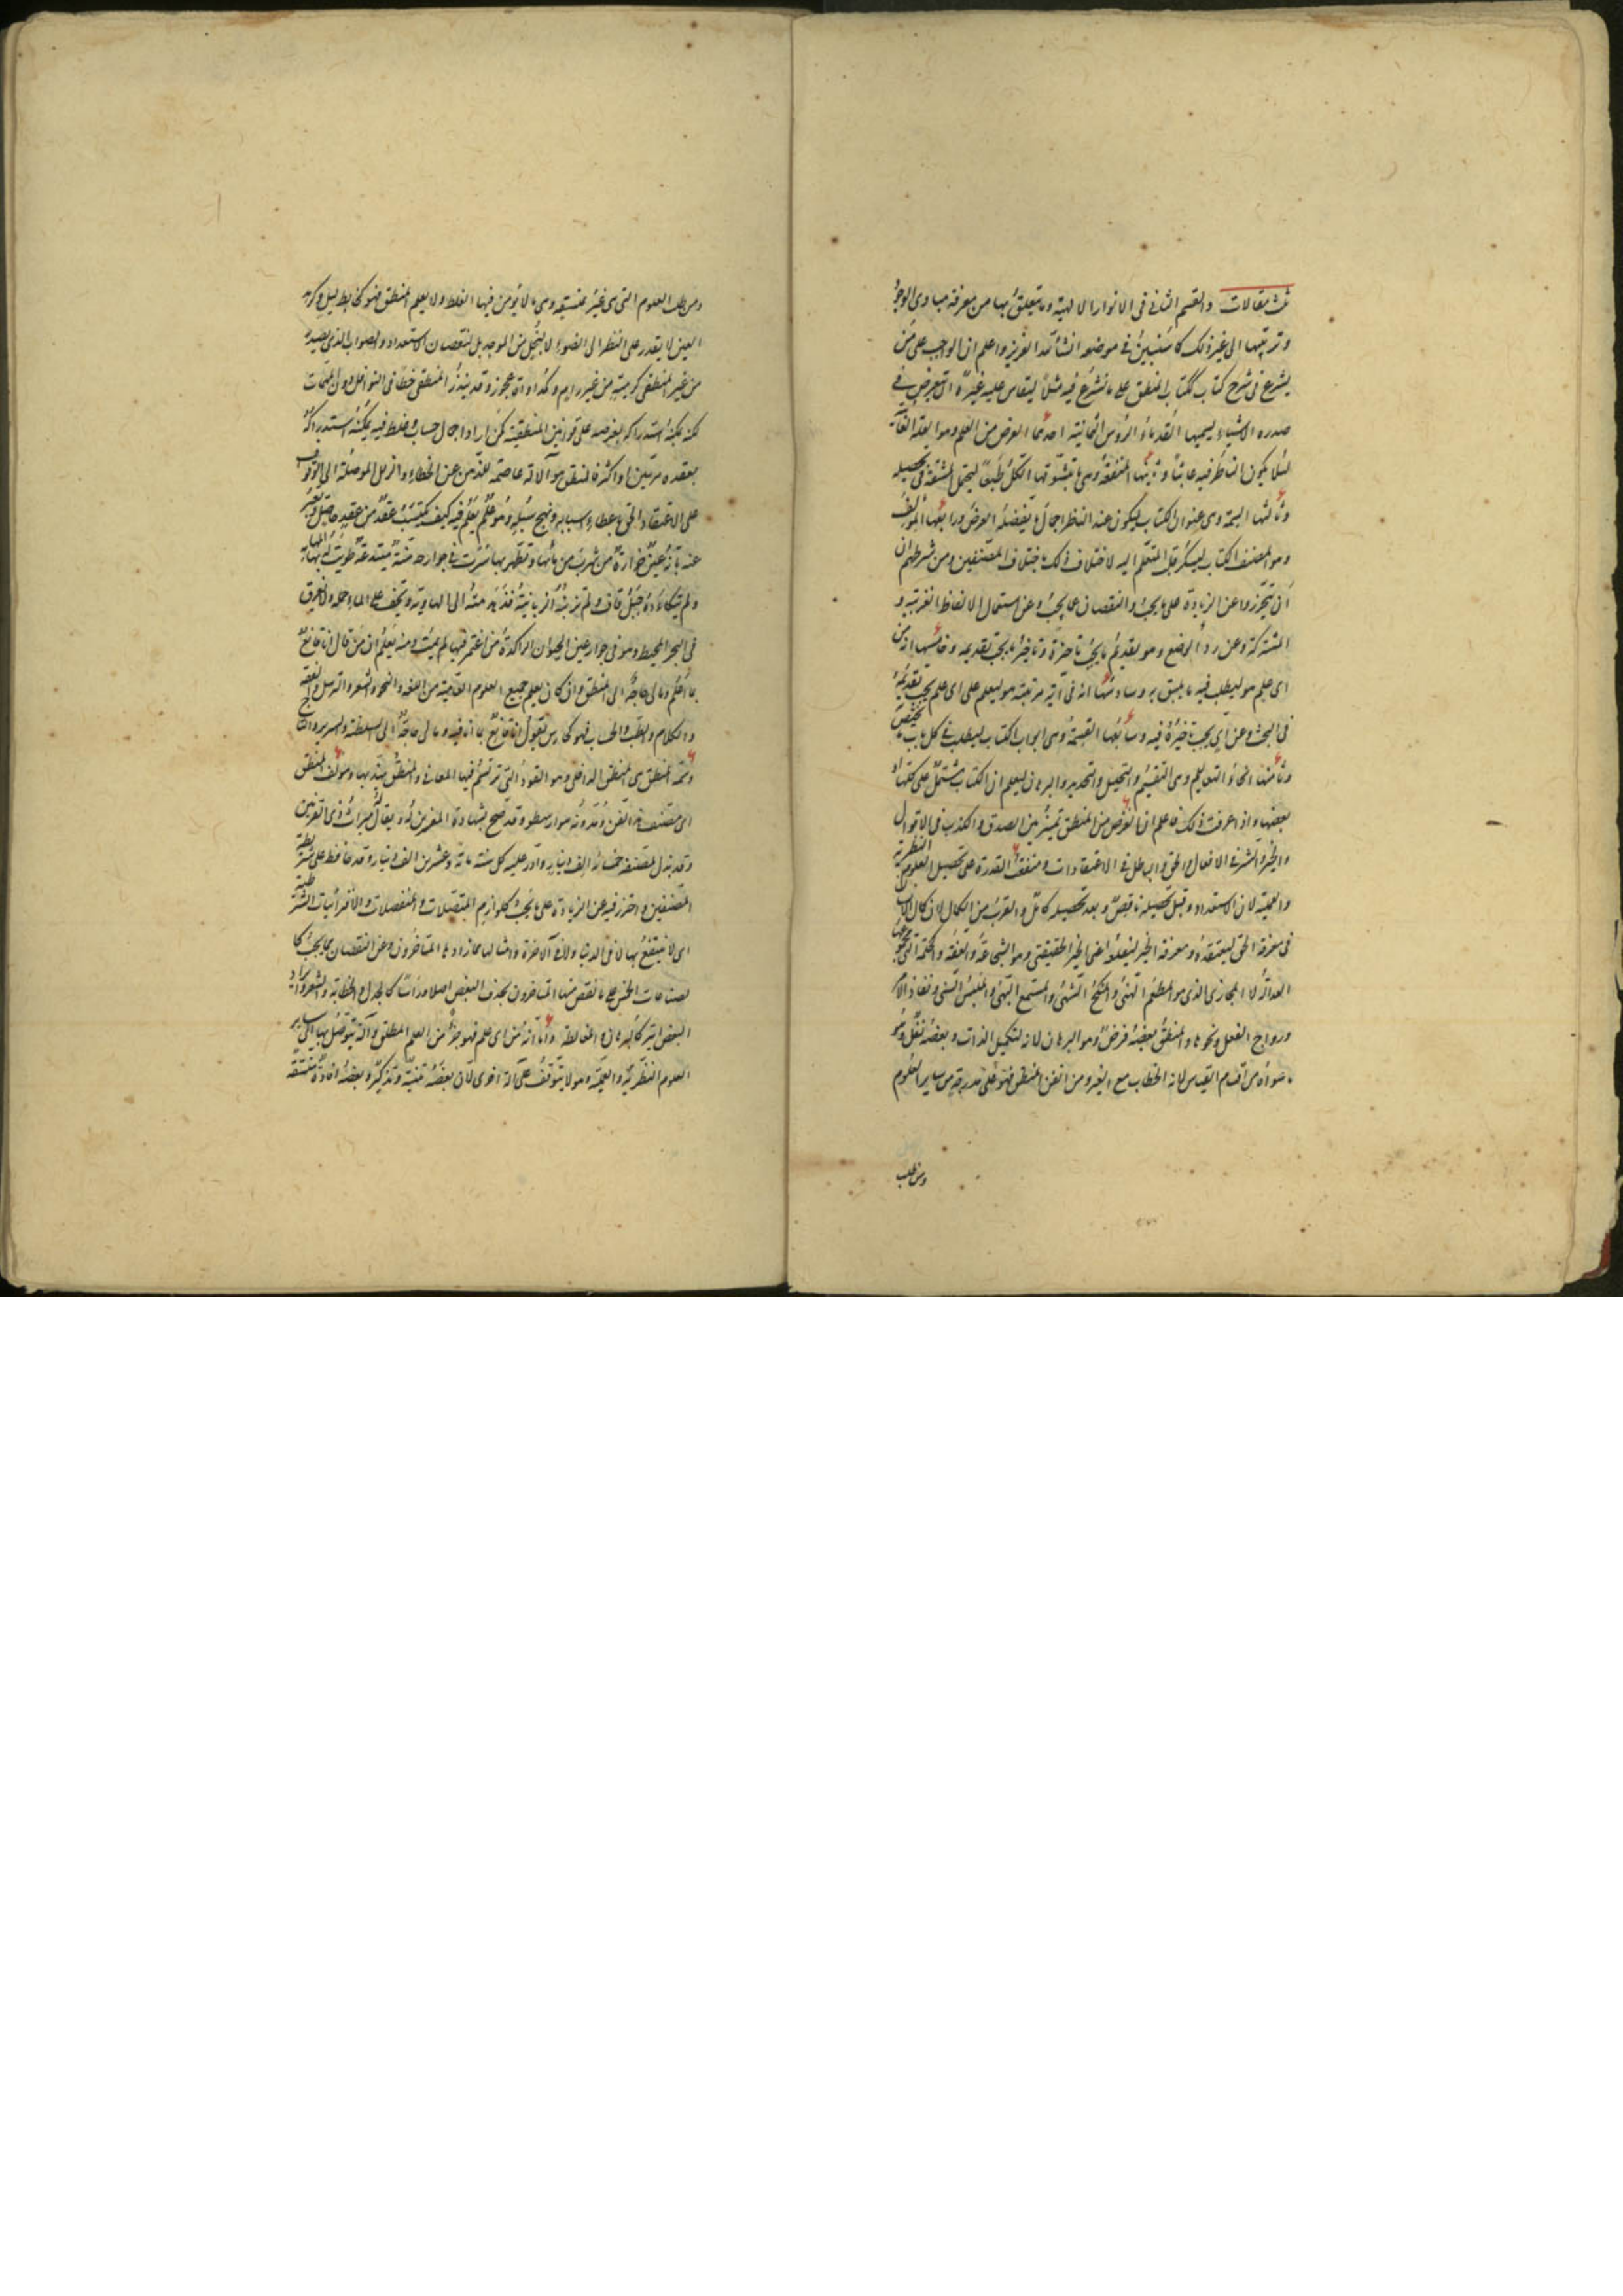 ثلث مقالات والقسم الثانى فى الانوار الالهية وما يتعلق بها من معرفة مبادى الوجود
وترتيبها الى غير ذلك كما سنبين فى موضعه انشأ الله العزيز واعلم ان الواجب على من
يشرع فى شرح كتاب ككتاب المنطق على ما نشرع فيه مثلاً ليقاس عليه غيره ان يتعرض فى
صدره الاشياء يسميها القدماء الرؤس الثمانية احدها الغرض من العلم وهو العلة الغائية
لئلا يكون الناظر فيه عابثاً وثانيها المنفعة وهى ما يتشوقها الكل طبعاً ليتحمل المشقة فى تحصيله
وثالثها السمة وهى عنوان الكتاب ليكون عند الناظر اجمال ما يفصله الغرض ورابعها المؤلف
وهو المصنف الكتاب ليسكن قلب المتعلم اليه لاختلاف ذلك باختلاف المصنفين ومن شرطهم ان
ان يتحرزوا عن الزيادة على ما يجب والنقصان عما يجب وعن استعمال الالفاظ الغريبة و
المشتركة وعن رداءة الوضع وهو تقديم ما يجب تاخيره وتاخير ما يجب تقديمه وخامسها انه من
اى علم هو ليطلب فيه ما يليق به وسادسها انه فى اية مرتبة هو ليعلم على اى علم يجب تقديمه
فى البحث وعن اى يجب تاخيره فيه وسابعها القسمة وهى ابواب الكتاب ليطلب فى كل باب ما يختص به
وثامنها انحاء التعاليم وهى التقسيم والتحليل والتحديد والبرهان ليعلم ان الكتاب مشتمل على كلها او
بعضها واذا عرفت ذلك فاعلم ان الغرض من المنطق تميز بين الصدق والكذب فى الاقوال
والخير والشر فى الافعال والحق والباطل فى الاعتقادات ومنفعته القدرة على تحصيل العلوم النظرية
والعملية لان الاستعداد وقبل تحصيله ناقص وبعد تحصيله كامل والقرب من الكمال لان كمال الانسان
فى معرفة الحق ليعتقده ومعرفة الخير ليفعله اعنى الخير الحقيقى وهو الشجاعة والعفة والحكمة التى مجموعها
العدالة لا المجازى الذى هو المطعم الهنى والمنكح الشهى والمستمع البهى والملبس السنى ونفاذ الامر
ورواج الفعل ونحوها والمنطق بعضه فرض وهو البرهان لانه لتكميل الذات وبعضه نفل وهو
ما سواه من اقسام القياس لانه الخطاب مع الغير ومن اتقن المنطق فهو على مدرجة من ساير العلوم
ومن طلب
ومن طلب العلوم التى هى غير متسقة وهى ما لا يؤمن فيها الغلط ولا يعلم المنطق فهو كحاطب ليل وكرمد
العين لا يقدر على النظر الى الضوء لا لبخل من الموجد بل لنقصان الاستعداد والصواب الذى يصدر
من غير المنطقى كرمية من غير رام وكمداواة عجوز وقد يندر المنطقى خطأ فى النوافل دون المهمات
لكنه يمكنه استدراكه بعرضه على قوانين المنطقية كمن اراد اجمال حساب وغلط فيه يمكنه استدراكه
بعقده مرتين او اكثر فالمنطق هو آلة عاصمة للذهن عن الخطاء والزلل الموصلة الى الوقوف
على الاعتقاد الحق باعطاء اسبابه ونهج سبله وهو علم يعلم فيه كيف يكتسب عقد من عقد حاصل ويعبر
عنه بانه عين خرارة من شرب من مائها وتطهر بها سرت فى جوارحه منة مبتدعة طويت له المهامة
ولم يتكاءده جبل قاف ولم تزبنه الزبانية فتدهدهه الى الهاوية ويخف على الماء حمله ولم يغرق
فى البحر المحيط وهو فى جوار عين الحيوان الراكدة من اغتمر فيها لم يمت ومنه يعلم ان من قال انا قانع
بما اعلم ومالى حاجة الى المنطق وان كان يعلم جميع العلوم القديمة من اللغة والنحو والشعر والترسل والفقه
والكلام والطب والحساب فهو كحارس يقول انا قانع بما انا فيه ومالى حاجة الى السلطنة والسرير والتاج
وسمة المنطق هى المنطق الداخلى وهو القوة التى ترتسم فيها المعانى والمنطق يتهذب بها ومؤلف المنطق
اى مصنف هذا الفن ومدونه هو ارسطو وقد صح بشهادة المفسرين له ويقال ميراث ذى القرنين
وقد بذل لمصنفه خمسمائة الف دينار وادر عليه كل سنة مائة وعشرين الف دينار وقد حافظ على شريطة
المصنفين واحترز فيه عن الزيادة على ما يجب كلوازم المتصلات والمنفصلات والاقترانيات الشرطية
اى لا ينتفع بها لا فى الدنيا ولا فى الآخرة وامثالها مما زاد ها المتاخرون وعن النقصان مما يجب كما
لصناعات الخمس على ما نقص منها المتاخرون بحذف البعض اصلا وراساً كالجدل والخطابة والشعر وايراد
البعض ابتر كالبرهان والمغالطة واما انه من اى علم فهو جزء من العلم المطلق وآلة يتوصل بها الى ساير
العلوم النظرية والعملية وهو لا يتوقف على آلة اخرى لان بعضه تنبيه وتذكير وبعضه افادة متسقة